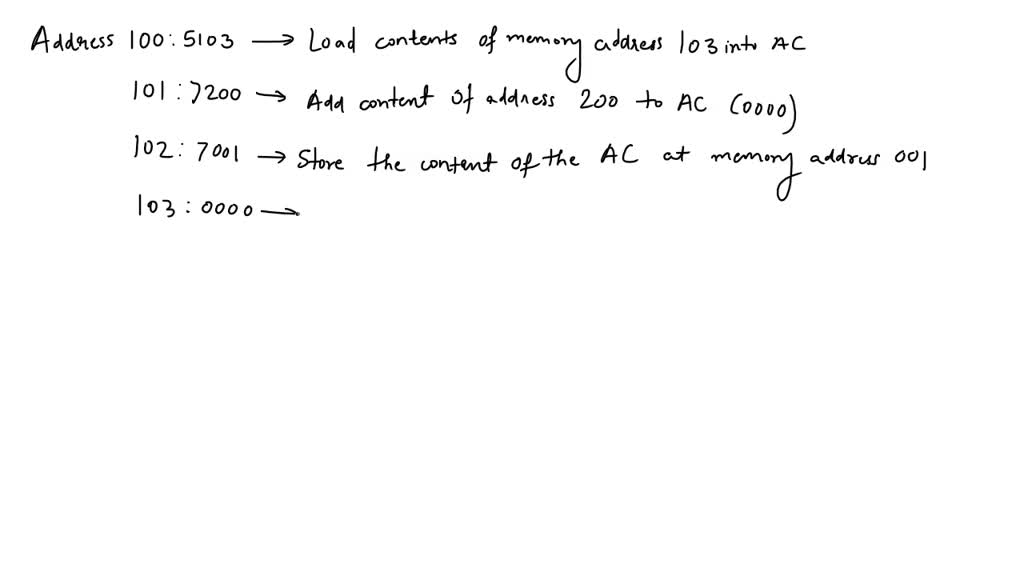 Address 100: 5103 → Load contents of memory address 103 into AC
101: 7200 → Add content of address 200 to AC (0000)
102: 7001 → Store the content of the AC at memory address 001
103: 0000 →